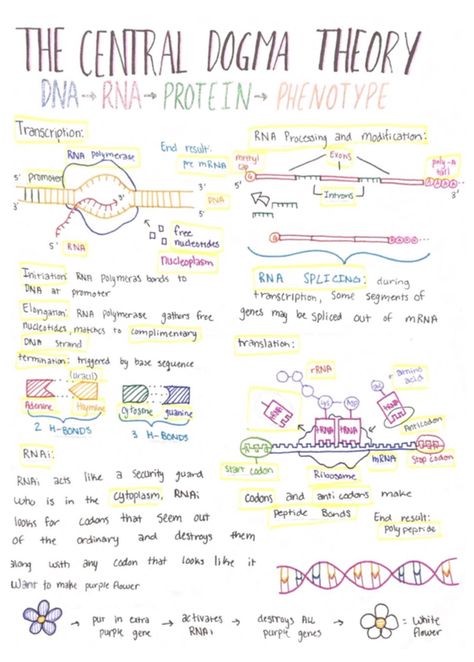 THE CENTRAL DOGMA THEORY
DNA → RNA → PROTEIN → PHENOTYPE
Transcription:
RNA polymerase
End result:
pre mRNA
promoter
5'
3'
3'
5'
DNA
5'
RNA
free
nucleotides
nucleoplasm
Initiation: RNA polymeras bonds to
DNA at promoter
Elongation: RNA polymerase gathers free
nucleotides, matches to complimentary
DNA strand
termination: triggered by base sequence
(uracil)
Adenine
Thymine
cytosine
guanine
2 H-BONDS
3 H-BONDS
RNAi:
RNAi acts like a security guard
who is in the cytoplasm, RNAi
looks for codons that seem out
of the ordinary and destroys them
along with any codon that looks like it
want to make purple flower
RNA Processing and Modification:
methyl
cap
Exons
poly-A
tail
5'
G
A A A A
3'
Introns
G
A A A A
RNA SPLICING: during
transcription, some segments of
genes may be spliced out of mRNA
translation:
rRNA
amino
acids
tRNA
Lys
Asp
tRNA
tRNA
tRNA
Anticodon
start codon
mRNA
Stop codon
Ribosome
codons and anti codons make
peptide Bonds
End result:
polypeptide
→ pur in extra
purple gene
→ activates
RNAi
→ destroys ALL
purple genes
→
= White
flower